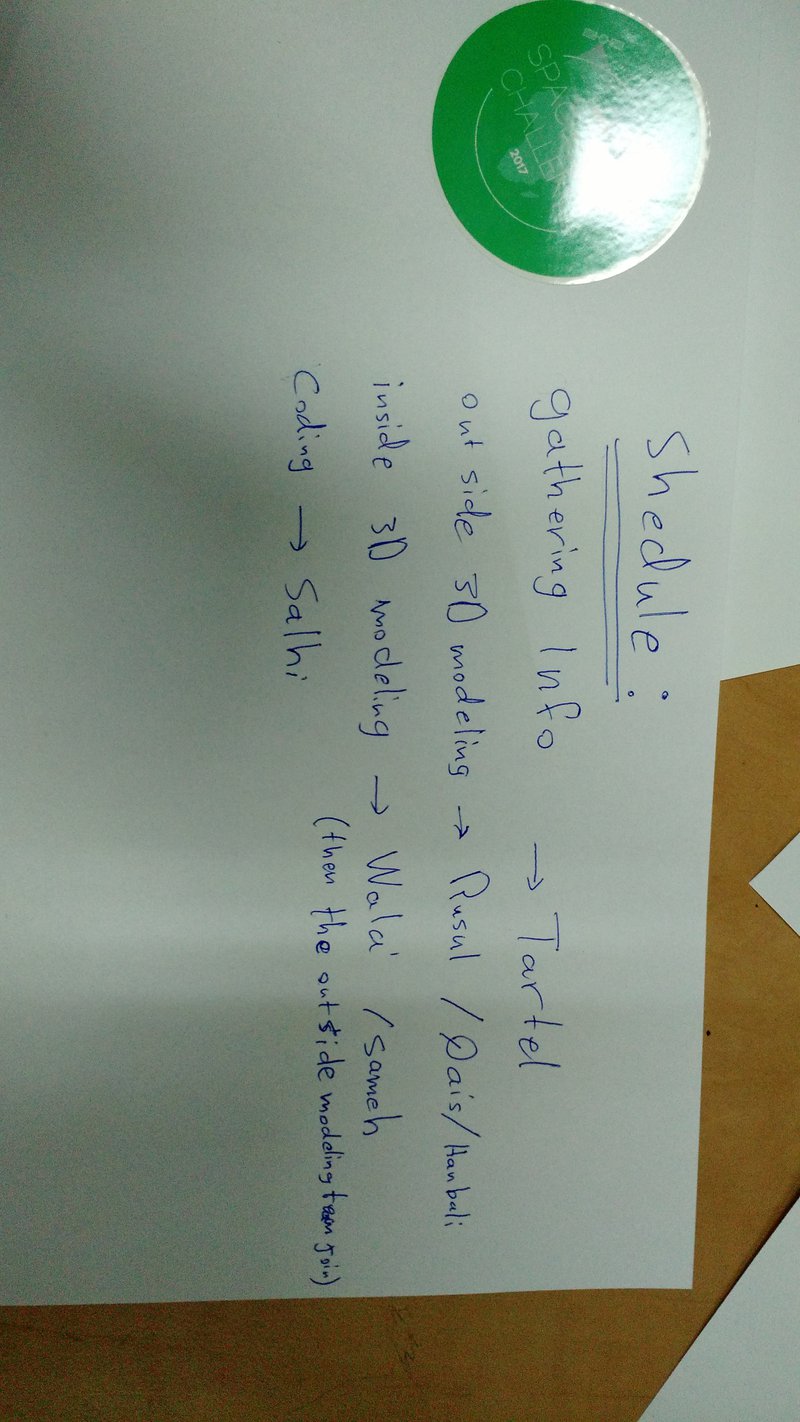 SPACE
CHALLEN
2017
Shedule:
gathering Info → Tartel
out side 3D modeling → Rusul / Qais / Hanbali
inside 3D modeling → Wala' / Sameh
(then the out side modeling team join)
Coding → Salhi